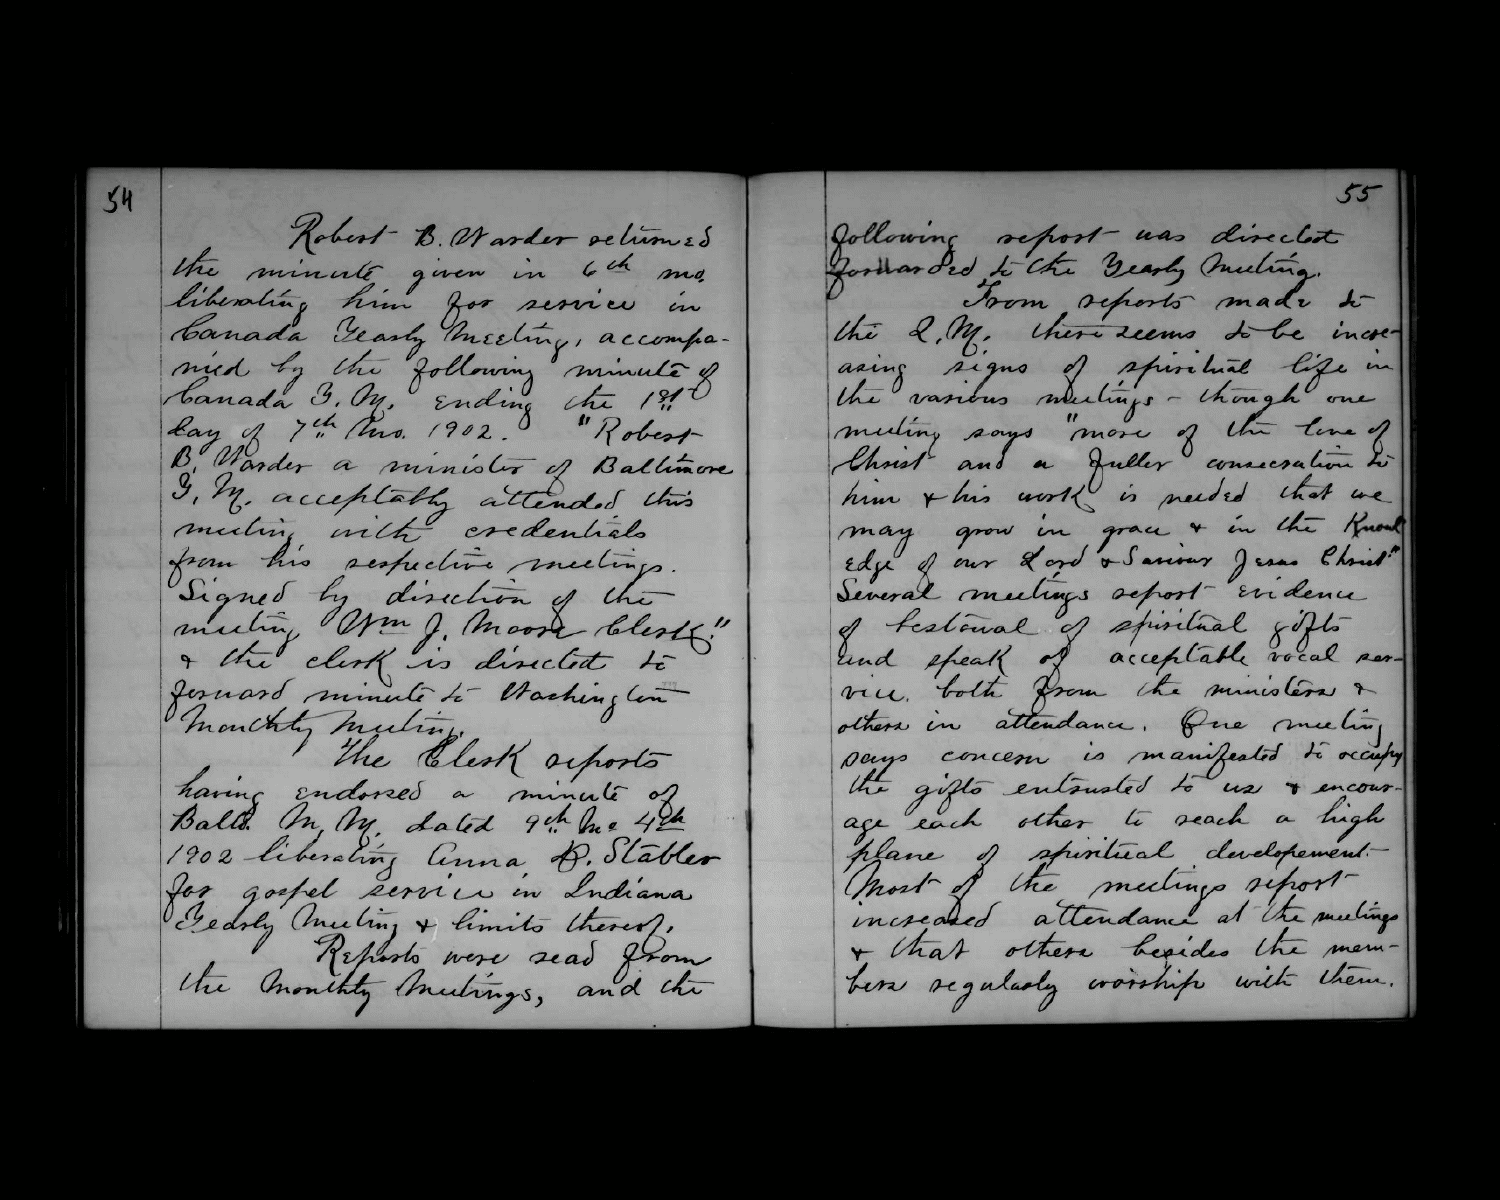 54
Robert B. Warder returned
the minute given in 6th mo.
liberating him for service in
Canada Yearly Meeting, accompa-
nied by the following minute of
Canada Y. M. ending the 1st
day of 7th Mo. 1902. "Robert
B. Warder a minister of Baltimore
Y. M. acceptably attended this
meeting with credentials
from his respective meetings.
Signed by direction of the
meeting Wm J. Moore Clerk."
& the clerk is directed to
forward minute to Washington
Monthly Meeting.
The Clerk reports
having endorsed a minute of
Balt. M. M. dated 9th Mo 4th
1902 liberating Anna B. Stabler
for gospel service in Indiana
Yearly Meeting & limits thereof.
Reports were read from
the Monthly Meetings, and the
55
following report was directed
forwarded to the Yearly Meeting.
From reports made to
the Q. M. there seems to be incre-
asing signs of spiritual life in
the various meetings - though one
meeting says "more of the love of
Christ and a fuller consecration to
him & his work is needed that we
may grow in grace & in the Knowl
edge of our Lord & Saviour Jesus Christ"
Several meetings report evidence
of bestowal of spiritual gifts
and speak of acceptable vocal ser-
vice. both from the ministers &
others in attendance. One meeting
says concern is manifested to occupy
the gifts entrusted to us & encour-
age each other to reach a high
plane of spiritual developement.
Most of the meetings report
increased attendance at the meetings
& that others besides the mem-
bers regularly worship with them.